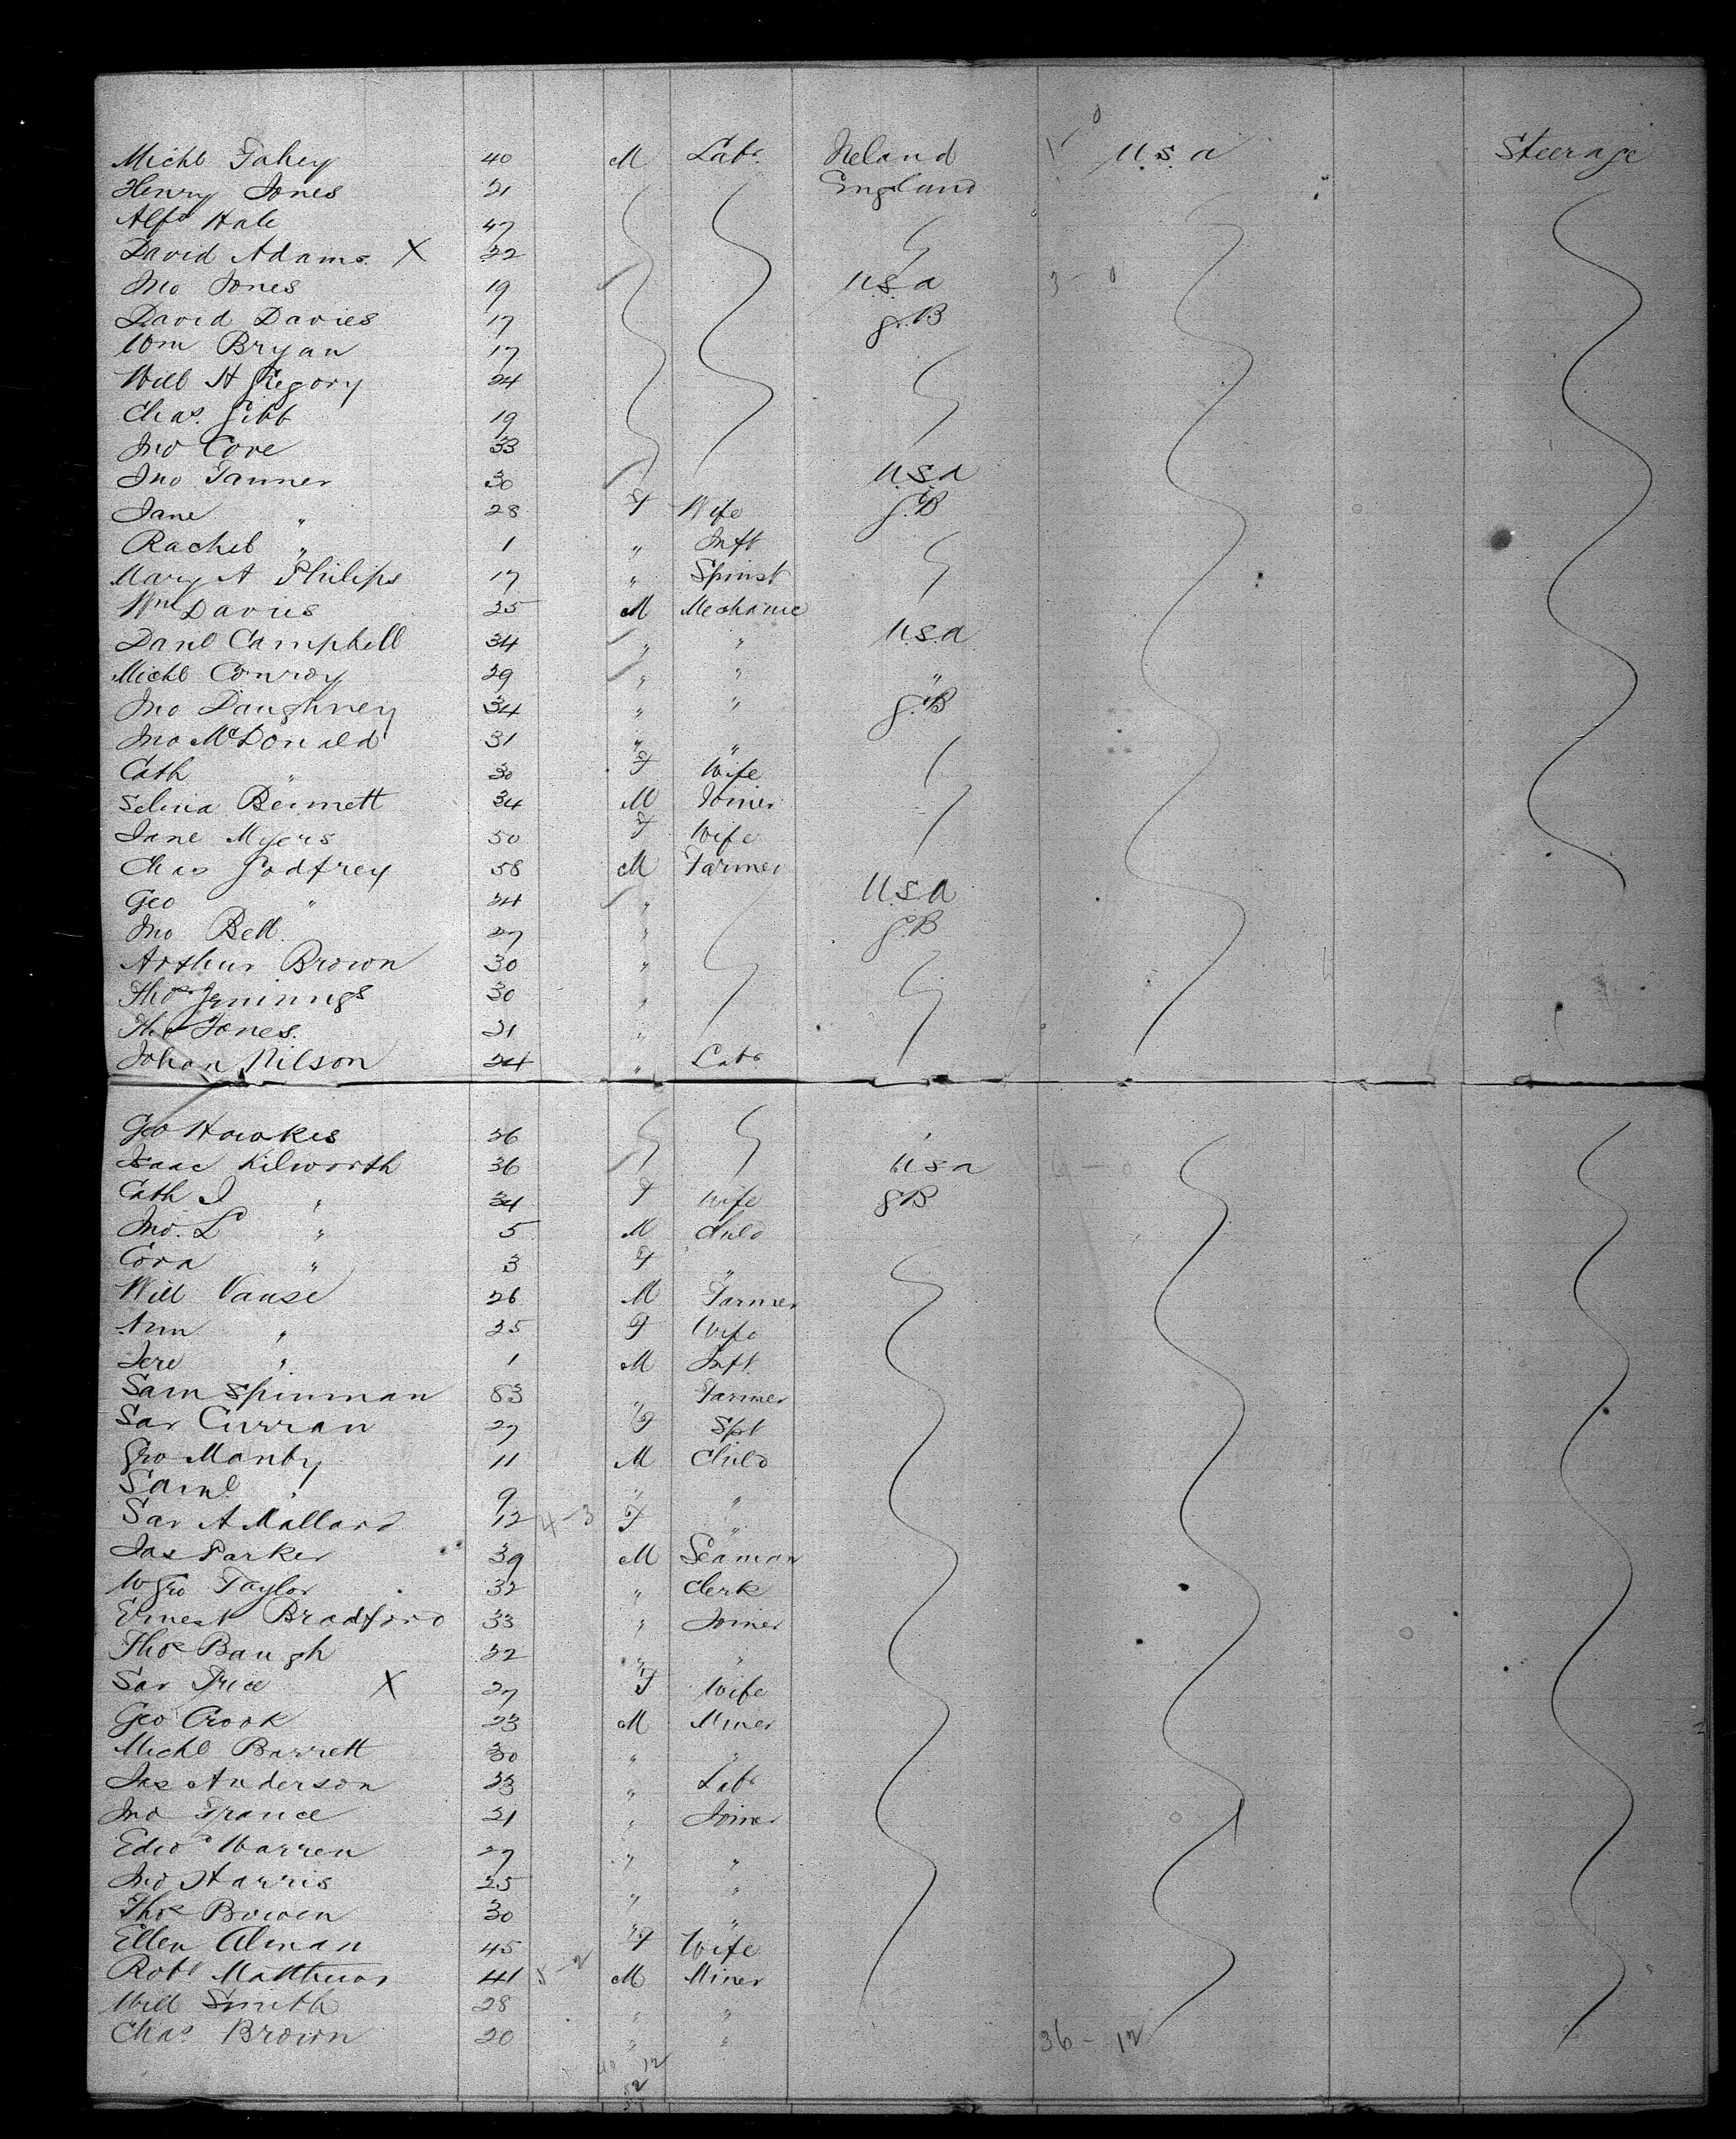 Michl Fahey 40 M Labr Ireland U.S.A Steerage
Henry Jones 21 England
Alfd Hale 47
David Adams X 22
Jno Jones 19 U.S.A
David Davies 17 G.B
Wm Bryan 17
Will H Gregory 24
Chas. Gibb 19
Jno Core 33
Jno Tanner 30 U.S.A
Jane " 28 F Wife G.B
Rachel " 1 " Inft
Mary A Philips 17 " Spinst
Wm Davies 25 M Mechanic
Danl Campbell 34 " " U.S.A
Michl Conroy 29 " " "
Jno Daughney 34 " " G.B
Jno McDonald 31 " "
Cath " 30 F Wife
Selina Bennett 34 M Joiner
Jane Myers 50 F Wife
Chas Godfrey 58 M Farmer
Geo " 24 " U.S.A
Jno Bell 27 " G.B
Arthur Brown 30 "
Thos Jennings 30 "
Thos Jones. 21 "
Johan Nilson 24 " Labr
Geo Hawkes 26
Isaac Kilworth 36 U.S.A
Cath J " 34 F Wife G.B
Jno. L " 5 M Child
Cora " 3 F "
Will Vause 26 M Farmer
Ann " 25 F Wife
Jere " 1 M Inft
Sam Spinman 53 " Farmer
Sar Curran 27 F Spt
Geo Manby 11 M Child
Saml " 9 " "
Sar A Mallard 12 4-3 F "
Jas Parker 39 M Seaman
W Geo Taylor 32 " Clerk
Ernest Bradford 33 " Joiner
Thos Baugh 22 " "
Sar Price X 27 F Wife
Geo Crook 23 M Miner
Michl Barrett 30 " "
Jas Anderson 33 " Labr
Jno France 21 " Joiner
Edwd Warren 27 " "
Jno Harris 25 " "
Thos Bowen 30 " "
Ellen Alman 45 F Wife
Robt Matthews 41 5-2 M Miner
Will Smith 28 " "
Chas Brown 20 " " 36-12